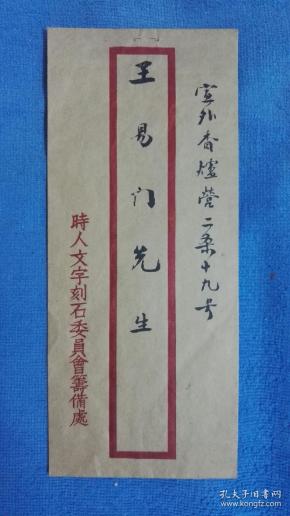 宣外香爐營二条十九号
王易门先生
時人文字刻石委員會籌備處
孔夫子旧书网